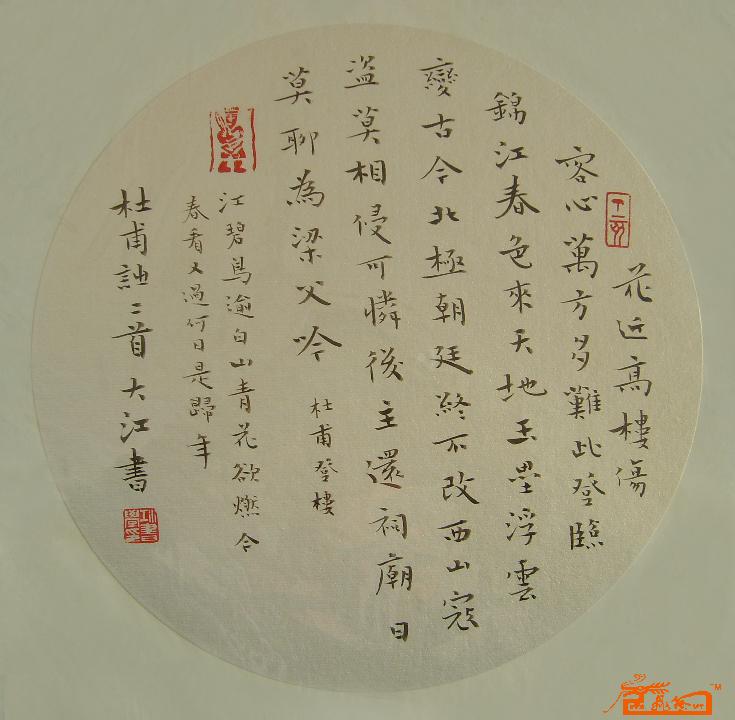 丁亥
花近高樓傷
客心萬方多難此登臨
錦江春色來天地玉壘浮雲
變古今北極朝廷終不改西山寇
盜莫相侵可憐後主還祠廟日
莫聊為梁父吟
杜甫登樓
江碧鳥逾白山青花欲燃今
春看又過何日是歸年
杜甫詩二首大江書